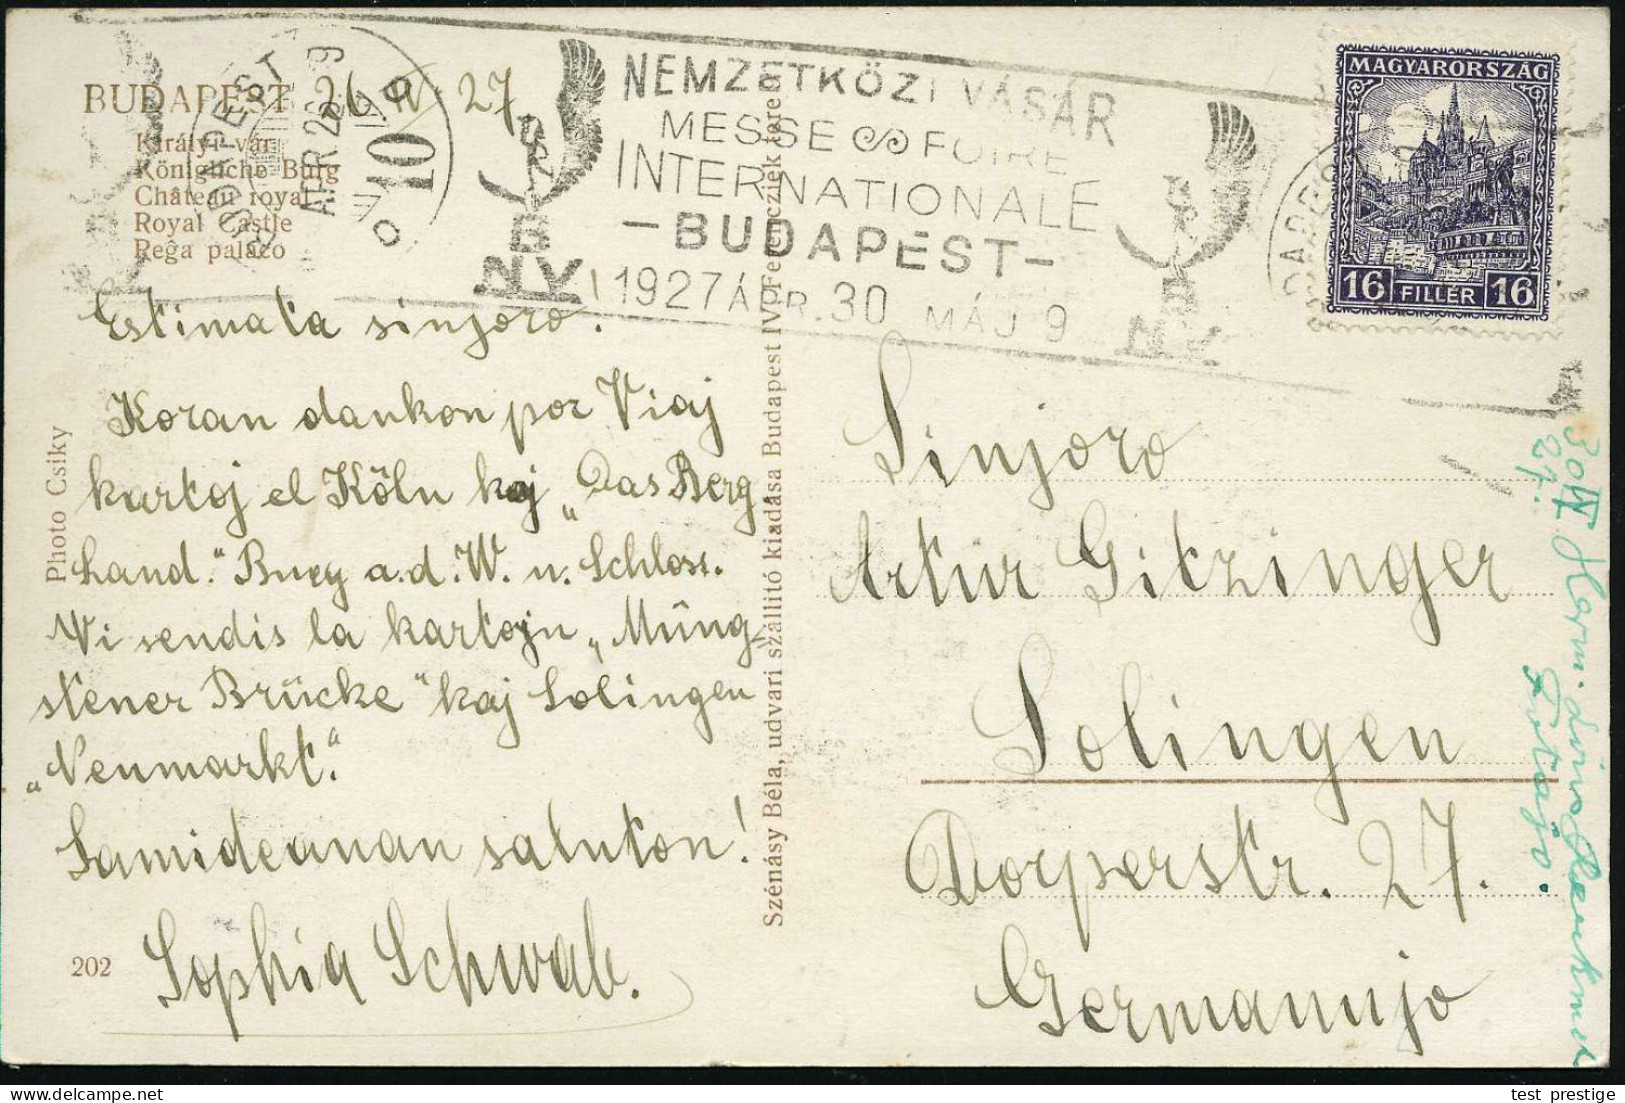 BUDAPEST 26 IV 27
Királyi vár
Königliche Burg
Château royal
Royal Castle
Reĝa palaco
BUDAPEST
APR 26
10
NEMZETKÖZI VÁSÁR
MESSE FOIRE
INTERNATIONALE
— BUDAPEST —
1927 ÁPR. 30 MÁJ 9
B
N.V.
B
N.V.
MAGYARORSZÁG
16 FILLÉR 16
Estimata sinjoro!
Koran dankon por Viaj
kartoj el Köln kaj „Das Berg
Land.“ Burg a.d. W. u. Schloss.
Vi sendis la kartojn „Müng-
stener Brücke“ kaj Solingen
„Neumarkt.“
Samideanan saluton!
Sophia Schwab.
Photo Csiky
202
Szénásy Béla, udvari szállitó kiadása Budapest IV. Ferencziek tere 9
Sinjoro
Artur Gitzinger
Solingen
Dorperstr. 27.
Germanujo
30 IV
27.
test_prestige